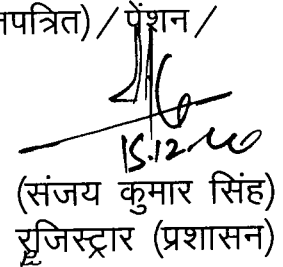 नपत्रित) / पेंशन /
15.12.20
(संजय कुमार सिंह)
रजिस्ट्रार (प्रशासन)